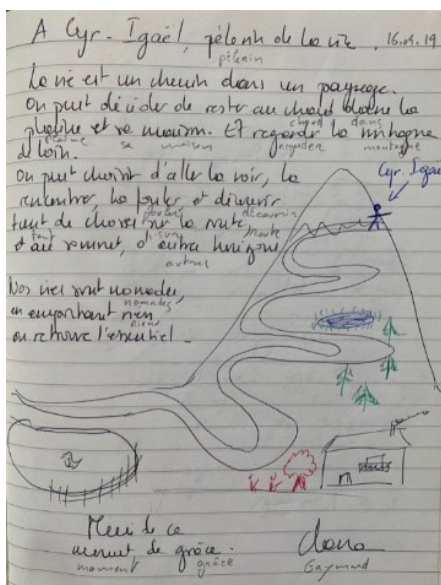 A Cyr-Igaël, pèlerin de la vie. 16.04.19
pèlerin
La vie est un chemin dans un paysage.
On peut décider de rester au chaud dans la
chaud dans
plaine et sa maison. Et regarder la montagne
plaine sa maison regarder montagne
de loin.
On peut choisir d'aller la voir, la
Cyr. Igaël
rencontrer, la fouler, et découvrir
fouler découvrir
tant de choses sur la route,
tant route
et au sommet, d'autres horizons
autres
Nos vies sont nomades,
nomades
en emportant rien
rien
on retrouve l'essentiel.
Merci de ce
moment de grâce.
moment grâce
Clara
Gaymard